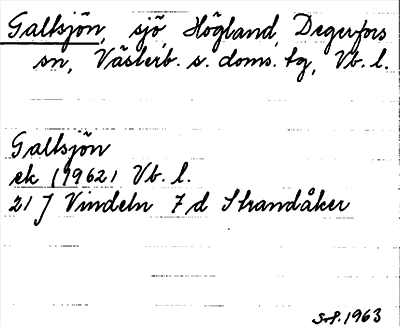 Galtsjön, sjö, Högland, Degerfors
sn, Västerb. s. doms. tg, Vb. l.
Galtsjön
ek (1962) Vb. l.
21 J Vindeln 7 d Strandåker
S.P. 1963